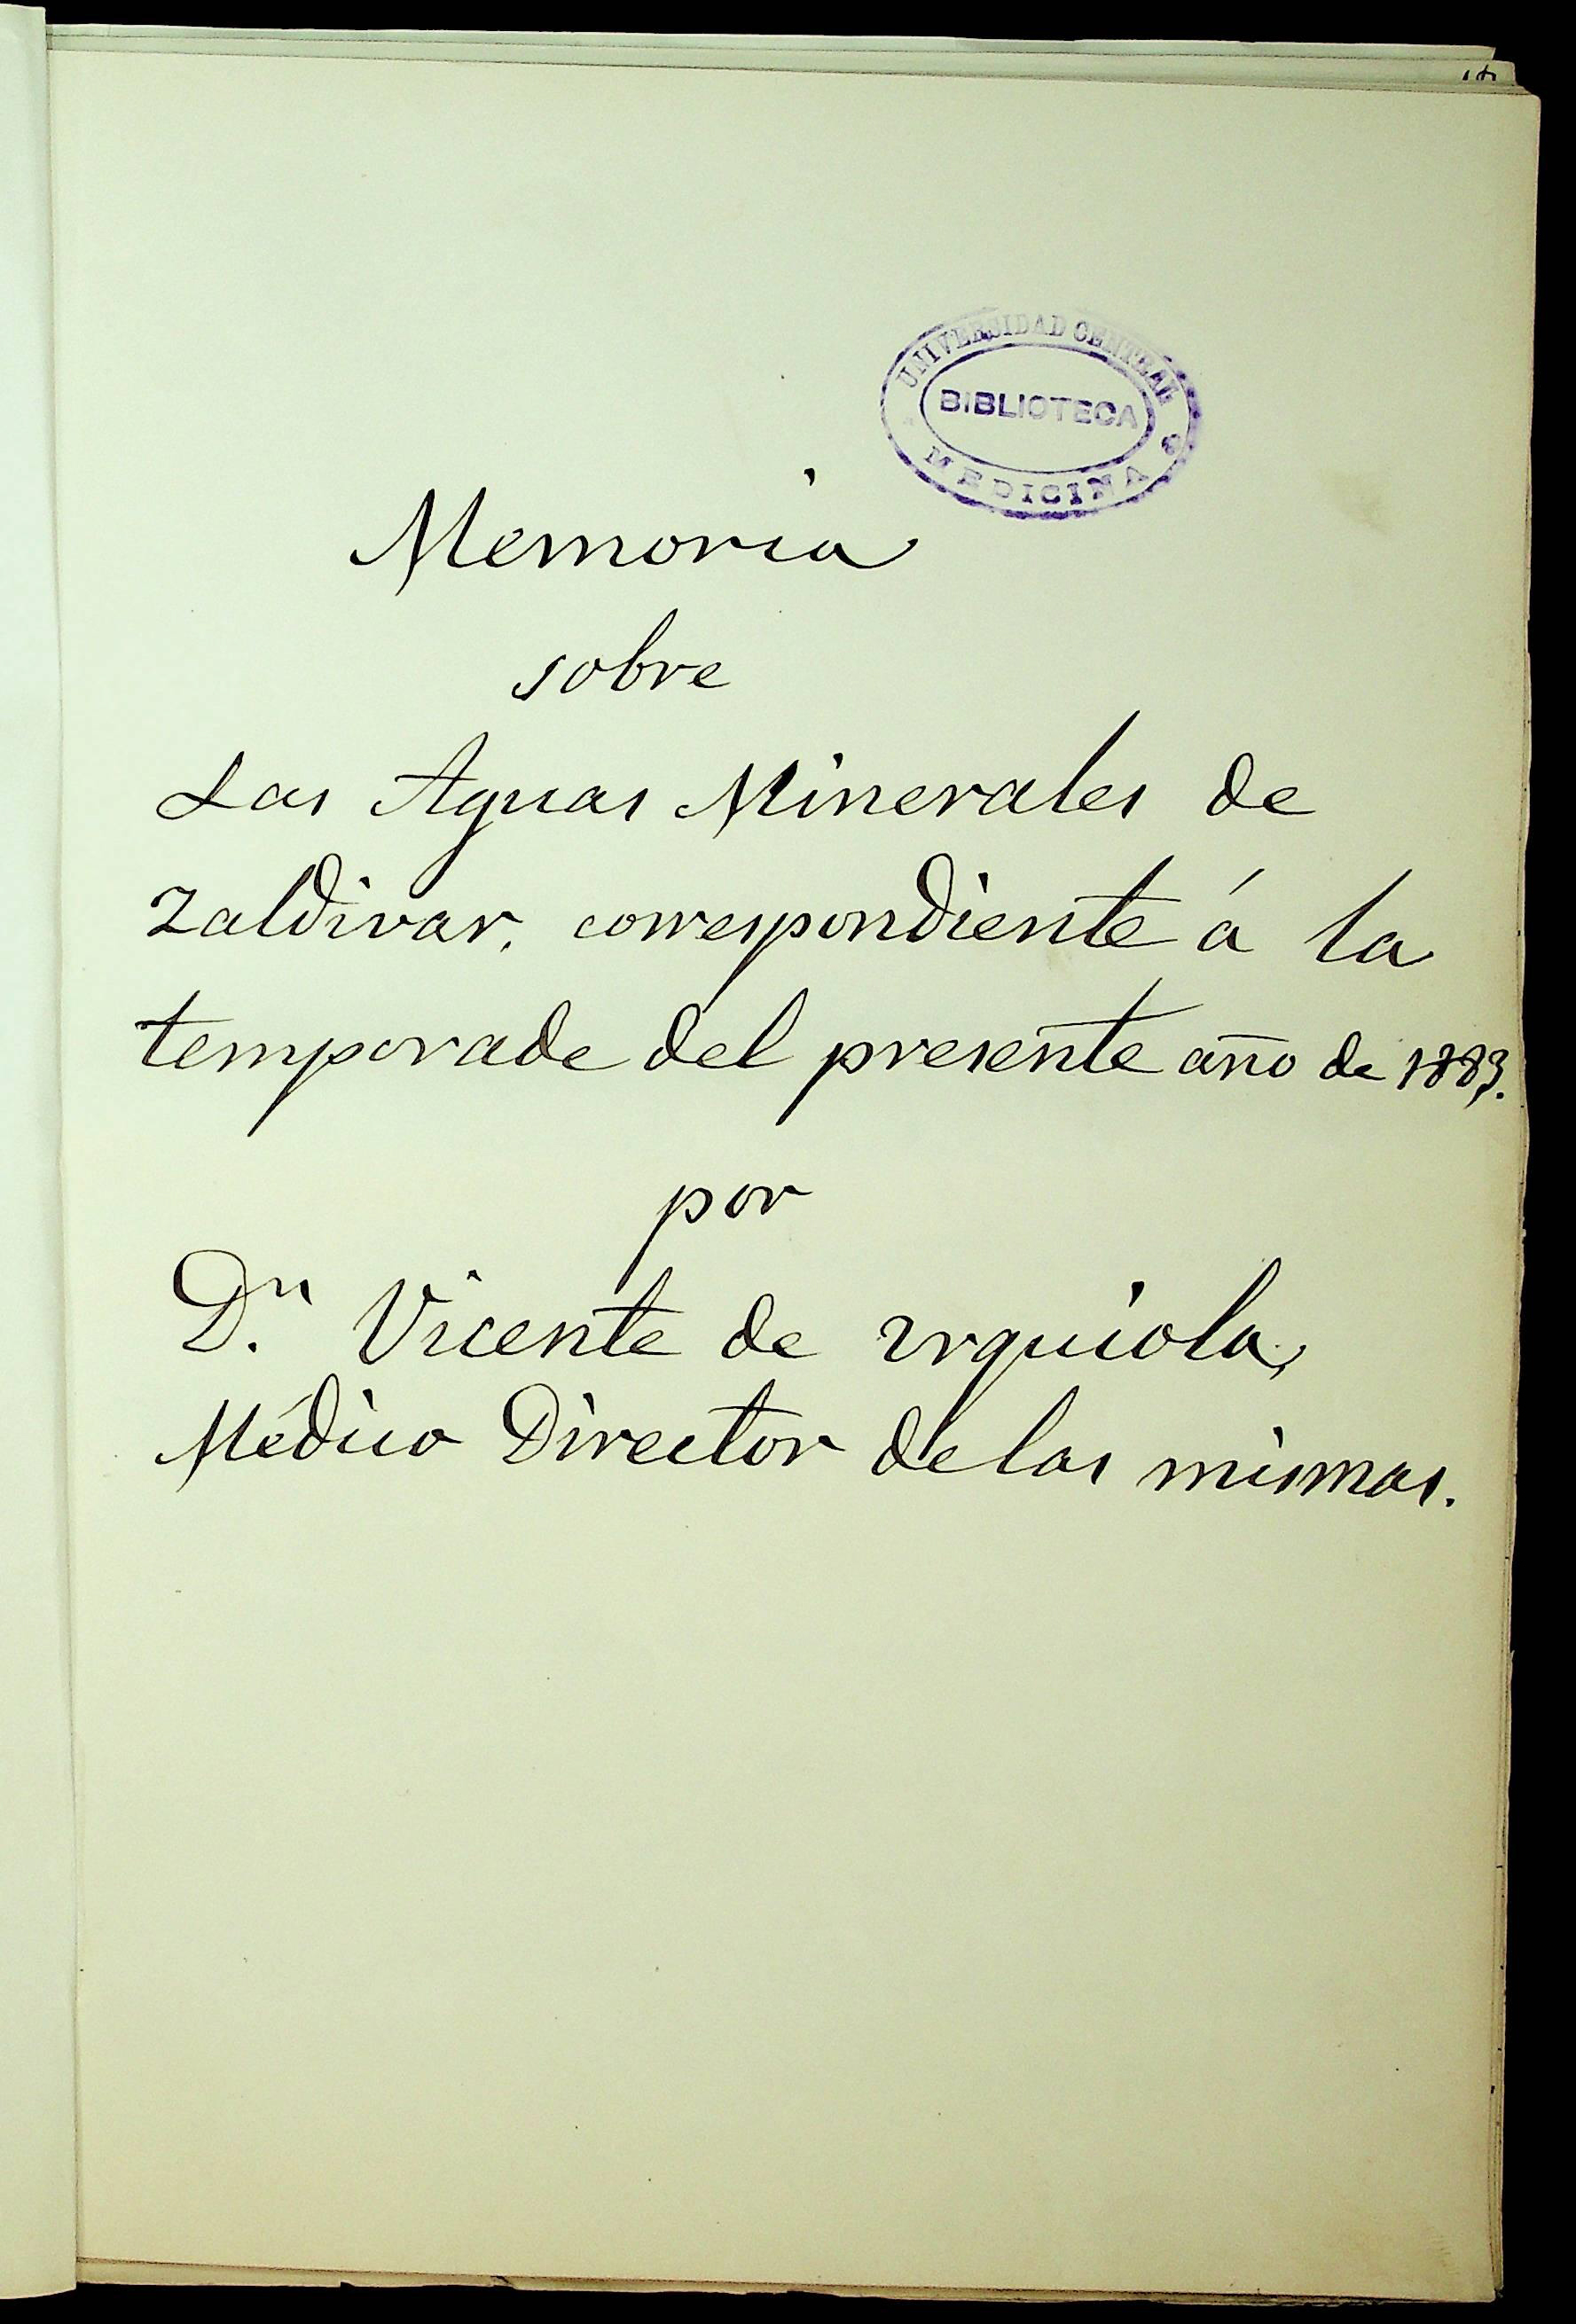 UNIVERSIDAD CENTRAL
BIBLIOTECA
MEDICINA
Memoria
sobre
Las Aguas Minerales de
Zaldivar, correspondiente á la
temporada del presente año de 1883.
por
D.n Vicente de Urquiola,
Médico Director de las mismas.